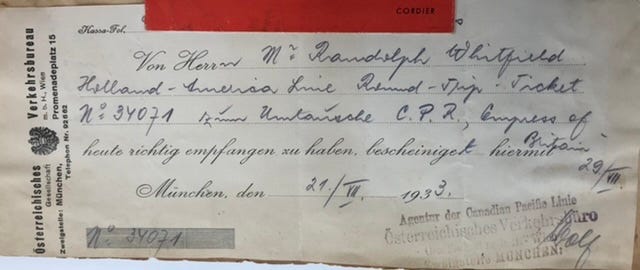 CORDIER
Kassa-Fol.
Österreichisches Verkehrsbureau
Gesellschaft m. b. H., Wien
Zweigstelle: München, Promenadeplatz 15
Telephon Nr. 92562
Von Herrn Mr Randolph Whitfield
Holland-America Line Round-Trip-Ticket
No 34071 zum Umtausche C.P.R., Empress of
Britain
heute richtig empfangen zu haben, bescheiniget hiermit
29/VII.
München, den 21/VII. 1933.
Agentur der Canadian Pacific Linie
Österreichisches Verkehrsbüro
MÜNCHEN
No 34071